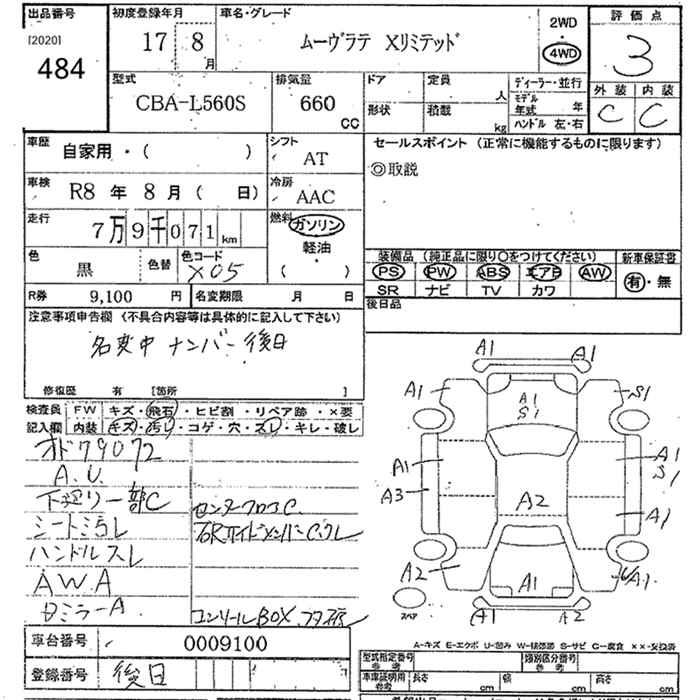 出品番号 初度登録年月 車名・グレード 2WD 評価点
[2020] 484 17 8月 ムーヴラテ Xリミテッド 4WD 3
型式 排気量 ドア 定員 人 ディーラー・並行 外装 内装
CBA-L560S 660 CC 形状 積載 kg モデル年式 年 C C
ハンドル 左・右
車歴 自家用・( ) シフト AT セールスポイント (正常に機能するものに限ります)
◎取説
車検 R8 年 8 月 ( 日) 冷房 AAC
走行 7万9千071km 燃料 ガソリン
軽油
( )
色 黒 色替 色コード X05
装備品 (純正品に限り○をつけてください) 新車保証書
PS PW ABS エアB AW 有・無
SR ナビ TV カワ
R券 9,100 円 名変期限 月 日 後日品
注意事項申告欄 (不具合内容等は具体的に記入して下さい)
名変中 ナンバー後日
修復歴 有 [箇所 ]
検査員記入欄 FW キズ・飛石・ヒビ割・リペア跡・×要
内装 キズ・汚レ・コゲ・穴・スレ・キレ・破レ
オド79072
A.U.
下廻り一部C センターフロアC
シート汚レ
ハンドルスレ
AWA
Dミラー A. コンソールBOX
A1 A1
A1 A1 S1 S1
A1 A1 S1
A3 A2 A1
A2 A1 A1
スペア A1 A2
A-キズ E-エクボ U-凹み W-補修跡 S-サビ C-腐食 ××-交換済
車台番号 0009100
登録番号 後日
型式指定番号 参考 類別区分番号 参考
車庫証明用 参考 長さ cm 幅 cm 高さ cm